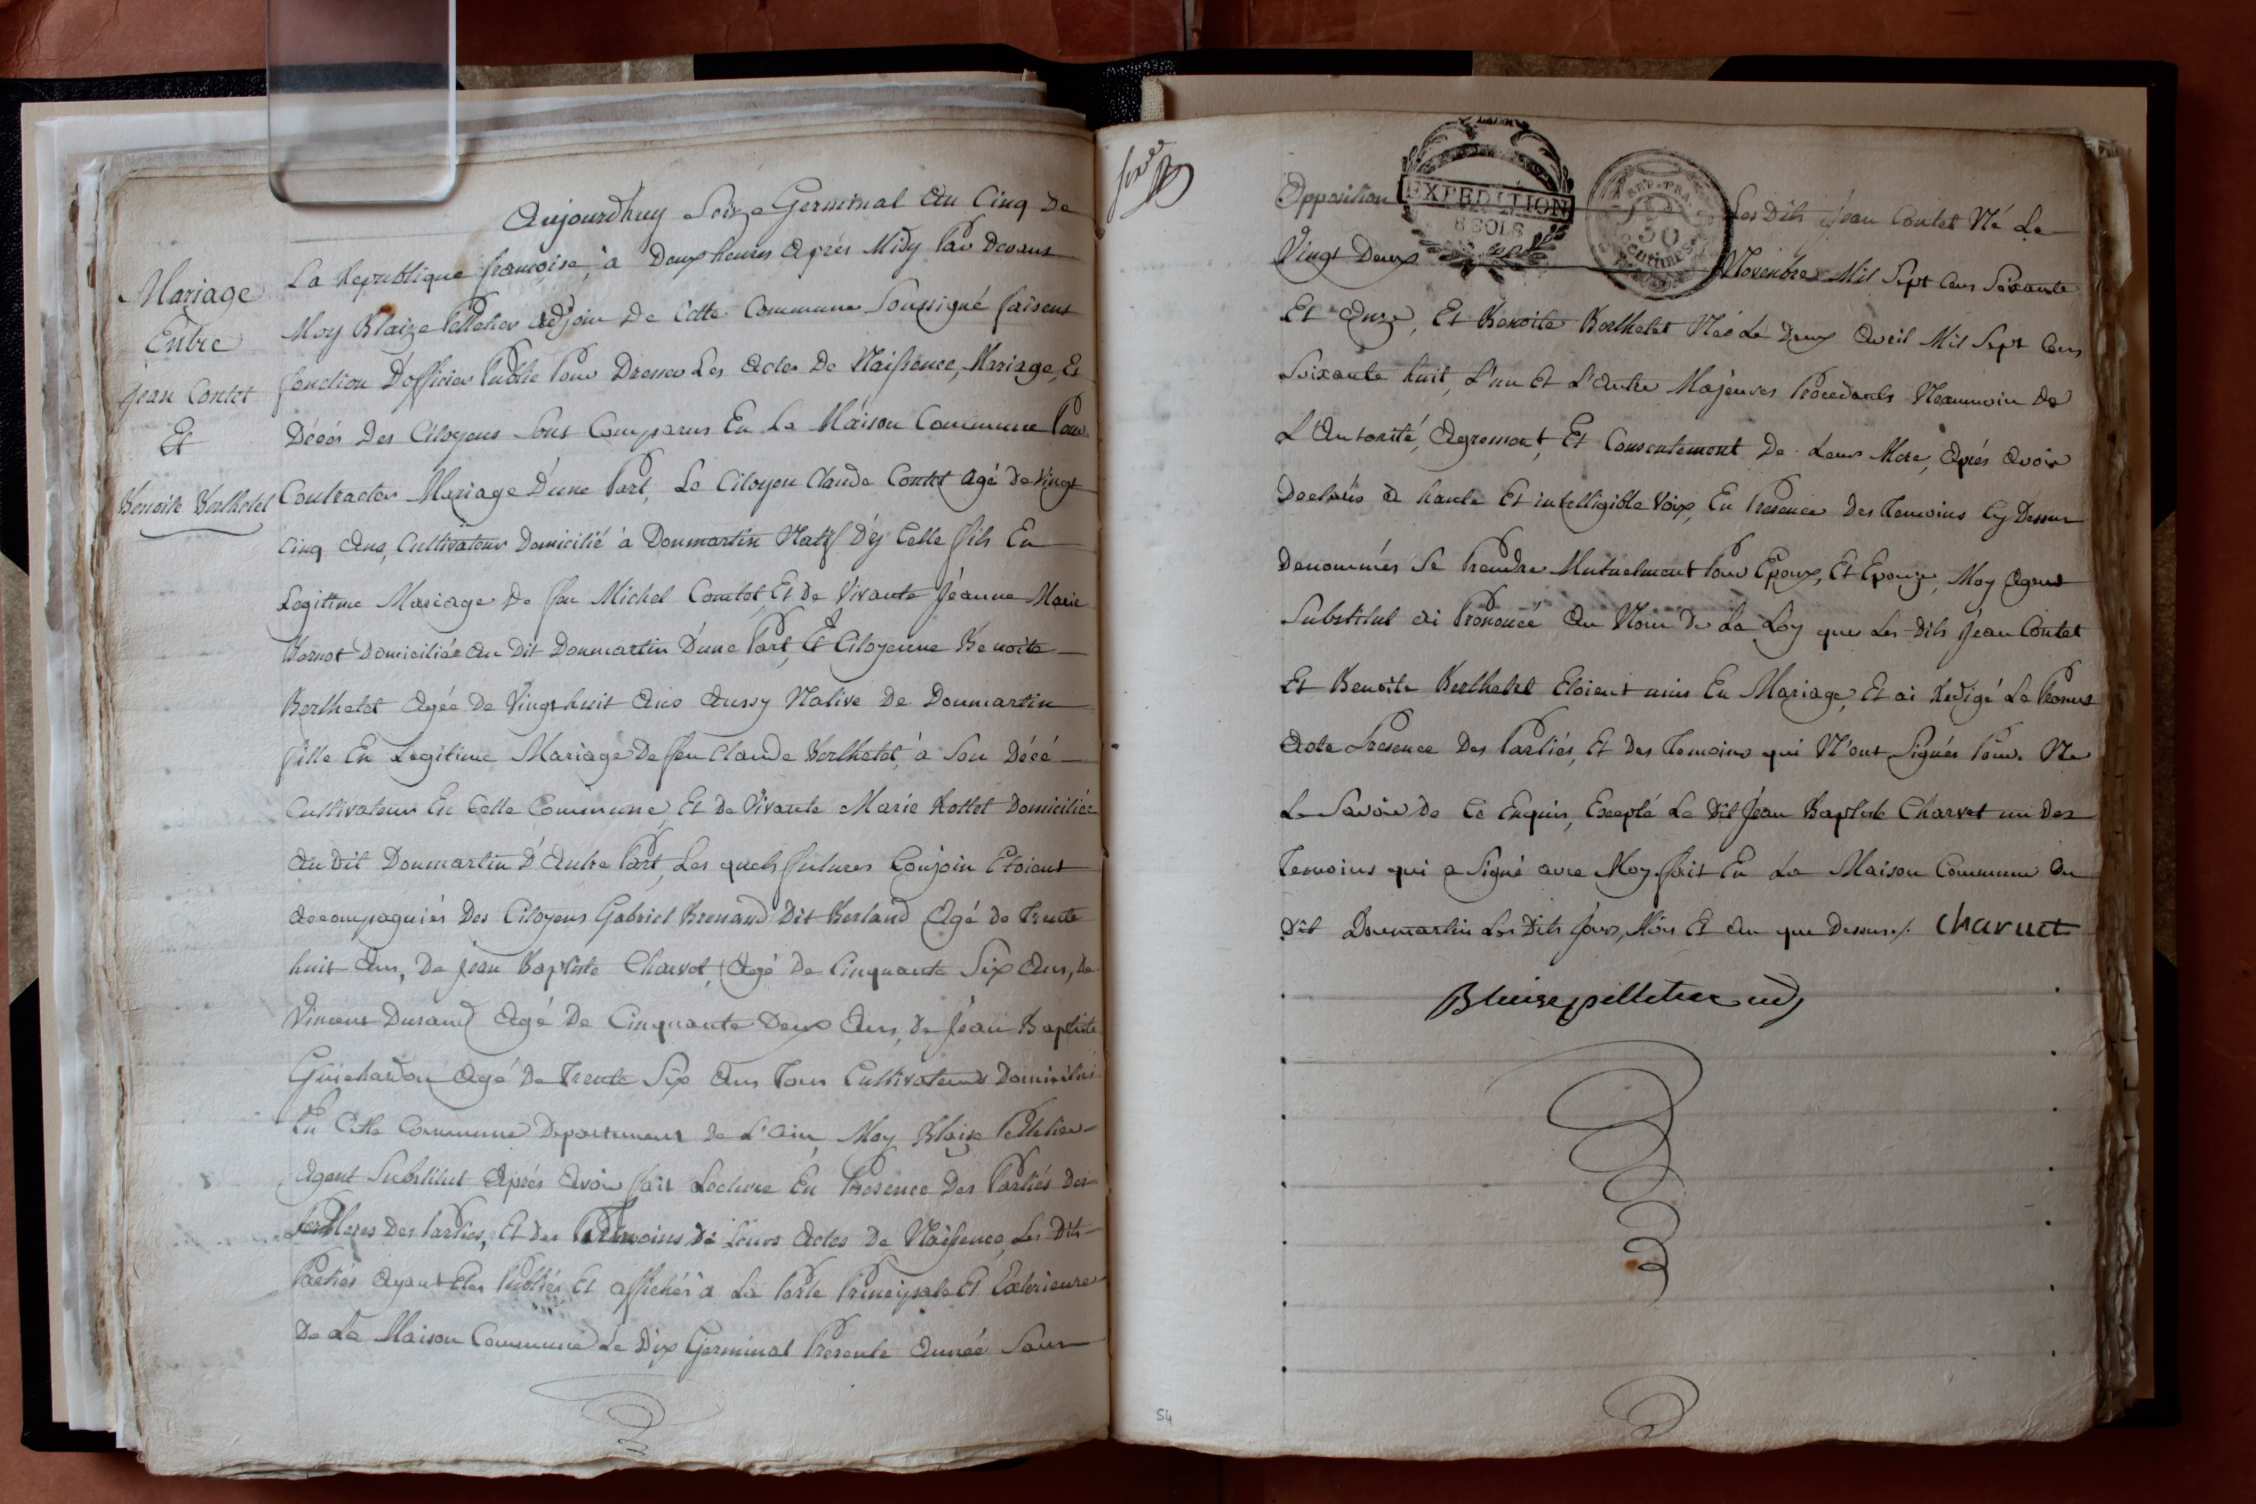 Aujourdhuy Seize Germinal An Cinq De
La Republique françoise, à Deux heures Après Midy Par Devant
Mariage
Entre
Jean Contet
Et
Benoite Berthelet
Moy Blaize Pelletier Adjoin De Cette Commune Soussigné faisent
fonction D'officier Public Pour Dresser Les Actes De Naissence, Mariage, Et
Décés Des Citoyens Sont Comparus En La Maison Commune Pour
Contracter Mariage D'une Part, Le Citoyen Claude Contet Agé De Vingt
Cinq Ans, Cultivateur Domicilié à Donmartin Natif D'y Celle fils En
Legitime Mariage De feu Michel Contet, Et De Vivante Jeanne Marie
Domiciliée Au Dit Donmartin D'une Part, Et Citoyenne Benoite
Berthelet Agée De Vingt huit Ans Aussy Native De Donmartin
fille En Legitime Mariage De feu Claude Berthelet, à Son Décé
Cultivateur En Cette Commune, Et De Vivante Marie Domiciliée
Au Dit Donmartin D'Autre Part, Les quels futures Conjoin Etoient
Accompagniés Des Citoyens Gabriel Dit Berland Agé De Trente
huit Ans, De Jean Baptiste Charvet, Agé De Cinquante Six Ans, De
Vincent Durand Agé De Cinquante Deux Ans, De Jean Baptiste
Guichardon Agé De Trente Six Ans Tous Cultivateurs Domiciliés
En Cette Commune Departement De L'ain, Moy Blaize Pelletier
Agent Substitut Après Avoir fait Lecture En Presence Des Partiés Des
Des Parties, Et Des Temoins De Leurs Actes De Naissence, Les Dits
Partiés Ayant Etes Publiés Et affichés à La Porte Principale Et Exterieure
De La Maison Commune Le Dix Germinal Presente Année Sans
Opposition Les Dits Jean Contet Né Le
EXPEDITION
8 SOLS
REP. FRA.
50
CENTIMES
Vingt Deux Novembre Mil Sept Cens Soixante
Et Onze, Et Benoite Berthelet Née Le Deux Avril Mil Sept Cens
Soixante huit, L'un Et L'Autre Majeures Procedants Neanmoin De
L'Autorité, Agrement, Et Consentement De Leur Mere, Après Avoir
Declarés à haute Et intelligible Voix, En Presence Des Temoins Cy Dessus
Denommés Se Prendre Mutuelment Pour Epoux, Et Epouze, Moy Agent
Substitut ai Prononcé Au Nom De La Loy que Les Dits Jean Contet
Et Benoite Berthelet Etoient unis En Mariage, Et ai Redigé Le Present
Acte Presence Des Partiés, Et Des Temoins qui N'ont Signés Pour Ne
Le Savoir De Ce Enquis, Excepté Le Dit Jean Baptiste Charvet un Des
Temoins qui a Signé avec Moy fait En La Maison Commune Du
Dit Donmartin Les Dits Jour, Mois Et An que Dessus ./. Charuet
Blaise pelletier adj
54